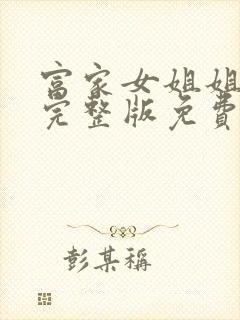 富家女姐姐
完整版免費
彭某稱